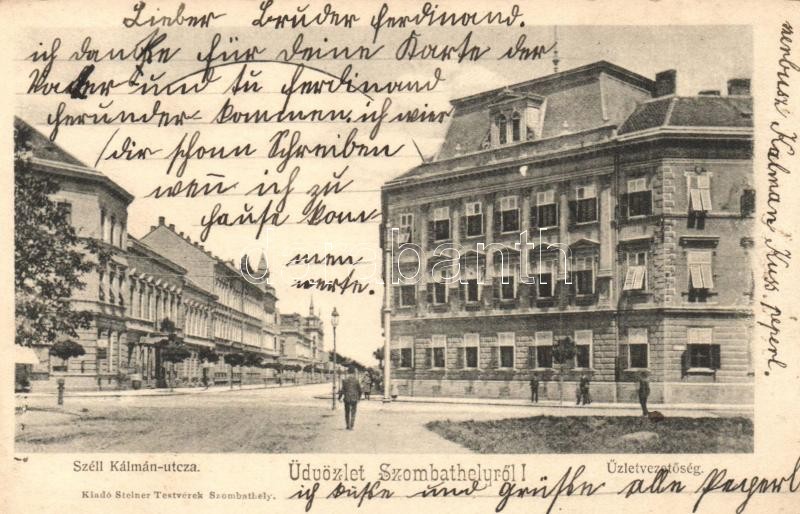 Lieber Bruder Ferdinand.
ich danke für deine Karte der
Vater und tu Ferdinand
herunder kommen. ich wier
dir schonn Schreiben
wen̄ ich zu
hause kom
men
werte.
darabanth.com
Széll Kálmán-utcza.
Üdvözlet Szombathelyről!
Üzletvezetőség.
Kiadó Steiner Testvérek Szombathely.
ich kuße und grüße alle
Kalman